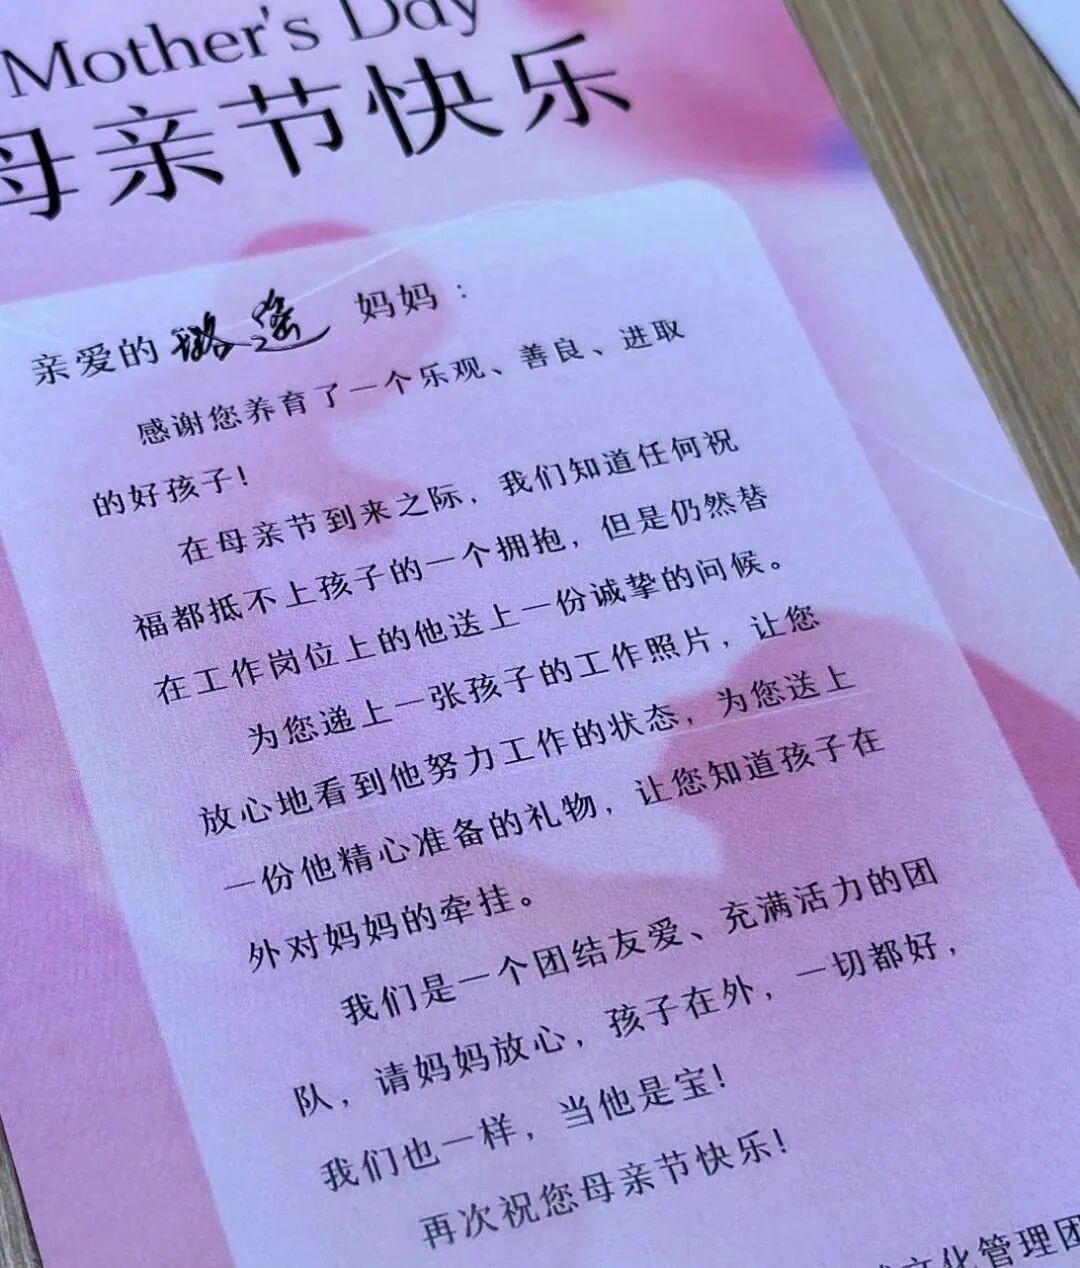 Mother's Day
母亲节快乐
亲爱的 妈妈：
感谢您养育了一个乐观、善良、进取
的好孩子！
在母亲节到来之际，我们知道任何祝
福都抵不上孩子的一个拥抱，但是仍然替
在工作岗位上的他送上一份诚挚的问候。
为您递上一张孩子的工作照片，让您
放心地看到他努力工作的状态，为您送上
一份他精心准备的礼物，让您知道孩子在
外对妈妈的牵挂。
我们是一个团结友爱、充满活力的团
队，请妈妈放心，孩子在外，一切都好，
我们也一样，当他是宝！
再次祝您母亲节快乐！
文化管理团